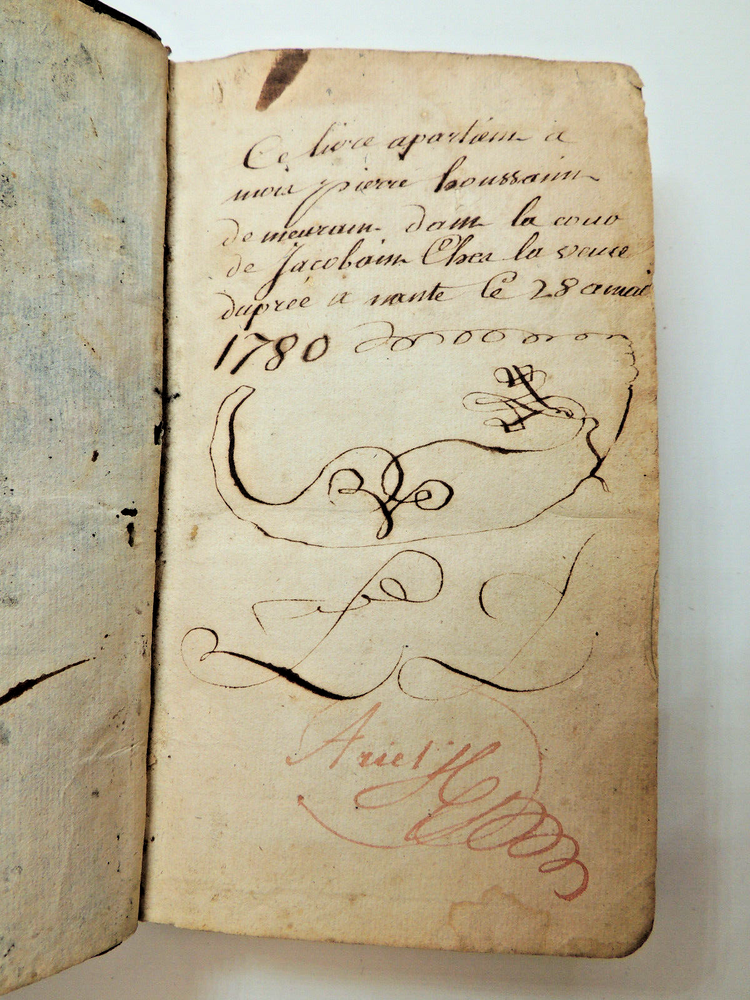 Ce livre apartiem a
mois pierre houssainn
demeuram dam la cour
de Jacobain Chez la veuve
duprée a nante Ce 28 avril
1780
Ariel